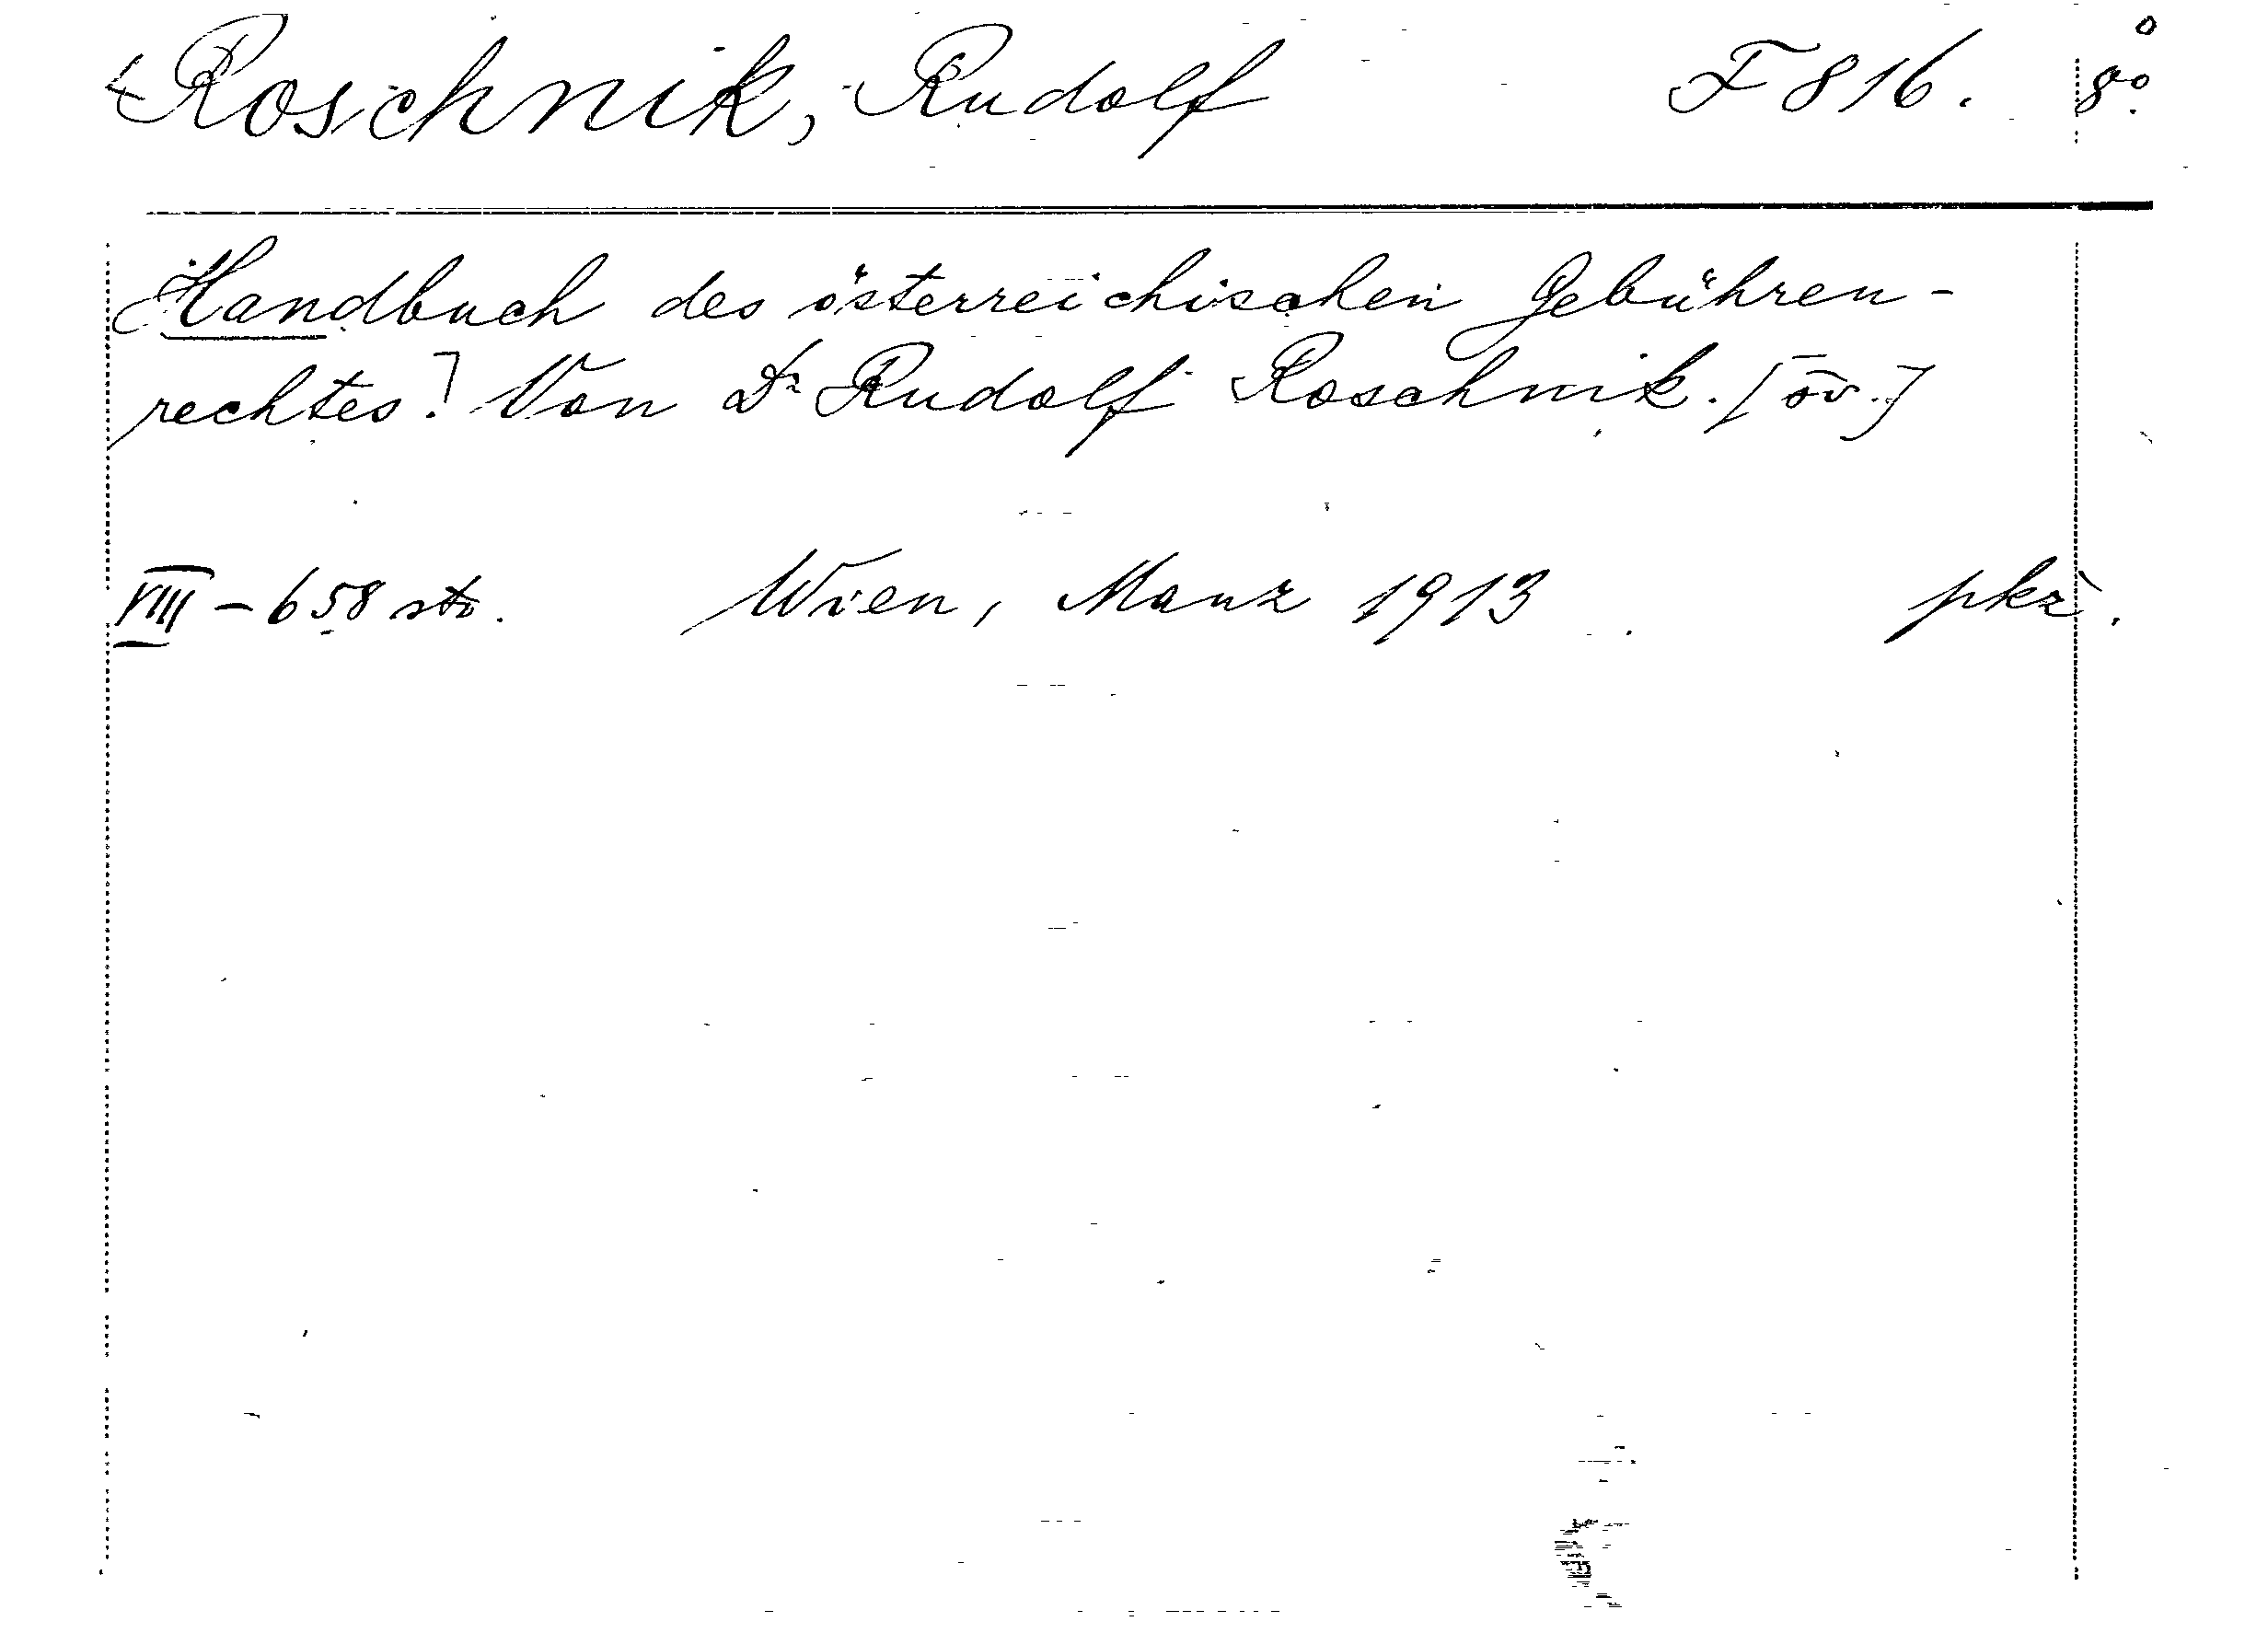 Roschnik, Rudolf F 816. 8°.
Handbuch des österreichischen Gebühren-
rechtes! Von Dr Rudolf Roschnik. [ov.]
VIII - 658 str. Wien, Manz 1913 pkz.